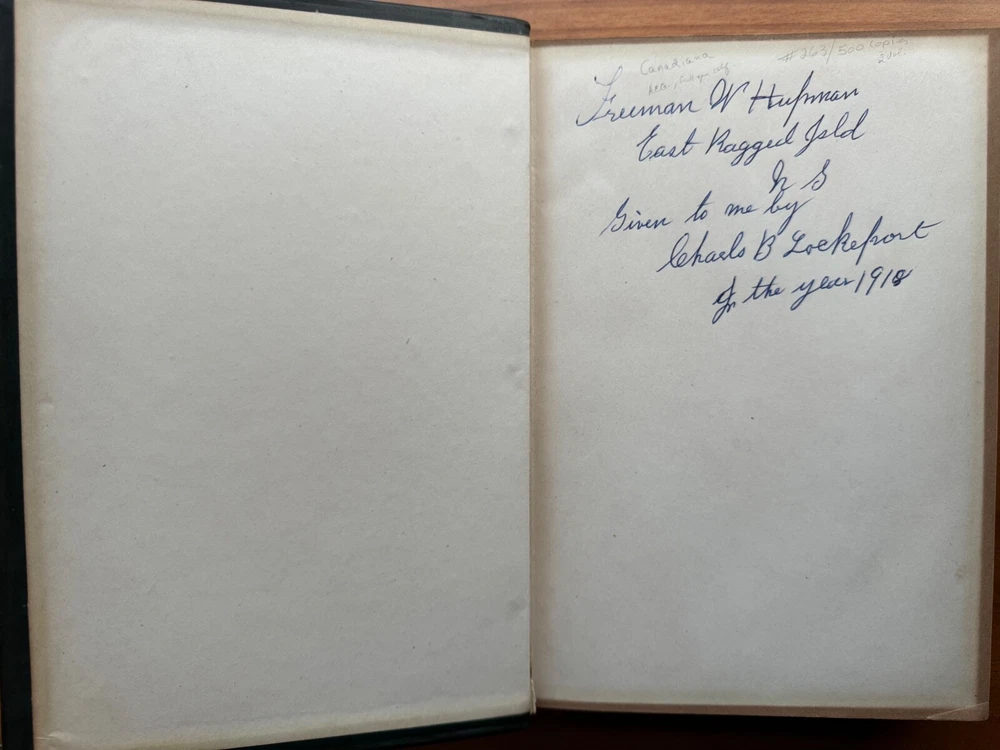 Canadiana
#263/500 copies
2 vol.
Freeman W Hupman
East Ragged Isld
N S
Given to me by
Charls B Lockeport
In the year 1918